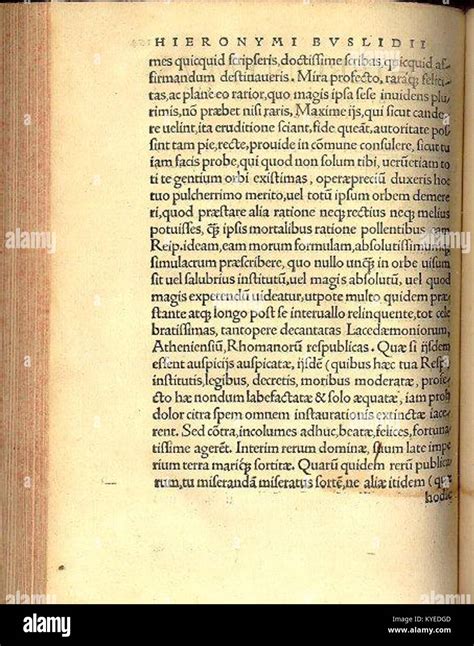 HIERONYMI BVSLIDII
mes quicquid scripseris, doctissime scribas, quicquid af-
firmandum destinaueris. Mira profecto, raraq; felici
tas, ac plane eo rarior, quo magis ipsa sese inuidens plu
rimis, nõ præbet nisi raris, Maxime ijs, qui sicut cande-
re uelint, ita eruditione sciant, fide queãt, autoritate pos
sint tam pie, recte, prouide in cõmune consulere, sicut tu
iam facis probe, qui quod non solum tibi, uerũetiam to
ti te gentium orbi existimas, operæpreciũ duxeris hoc
tuo pulcherrimo merito, uel totũ ipsum orbem demere
ri, quod præstare alia ratione neq; rectius neq; melius
potuisses, q̃ ipsis mortalibus ratione pollentibus eam
Reip. ideam, eam morum formulam, absolutissimũq;
simulacrum præscribere, quo nullo unq̃ in orbe uisum
sit uel salubrius institutũ, uel magis absolutũ, uel quod
magis expetendũ uideatur, utpote multo quidem præ
stante atq; longo post se interuallo relinquente, tot cele
bratissimas, tantopere decantatas Lacedæmoniorum,
Atheniensiũ, Rhomanorũ respublicas. Quæ si ijsdem
essent auspicijs auspicatæ, ijsdẽ (quibus hæc tua Resp.)
institutis, legibus, decretis, moribus moderatæ, profe
cto hæ nondum labefactatæ & solo æquatæ, iam proh
dolor citra spem omnem instaurationis extinctæ iace
rent. Sed cõtra, incolumes adhuc, beatæ, felices, fortuna
tissime agerẽt. Interim rerum dominæ, suum late imp
erium terra mariq; sortitæ. Quarũ quidem rerũ publica
rum, tu miserandã miseratus sortẽ, ne aliæ itidem (quæ
hodie
alamy
alamy
alamy
a
alamy stock photo
Image ID: KYEDGD
www.alamy.com